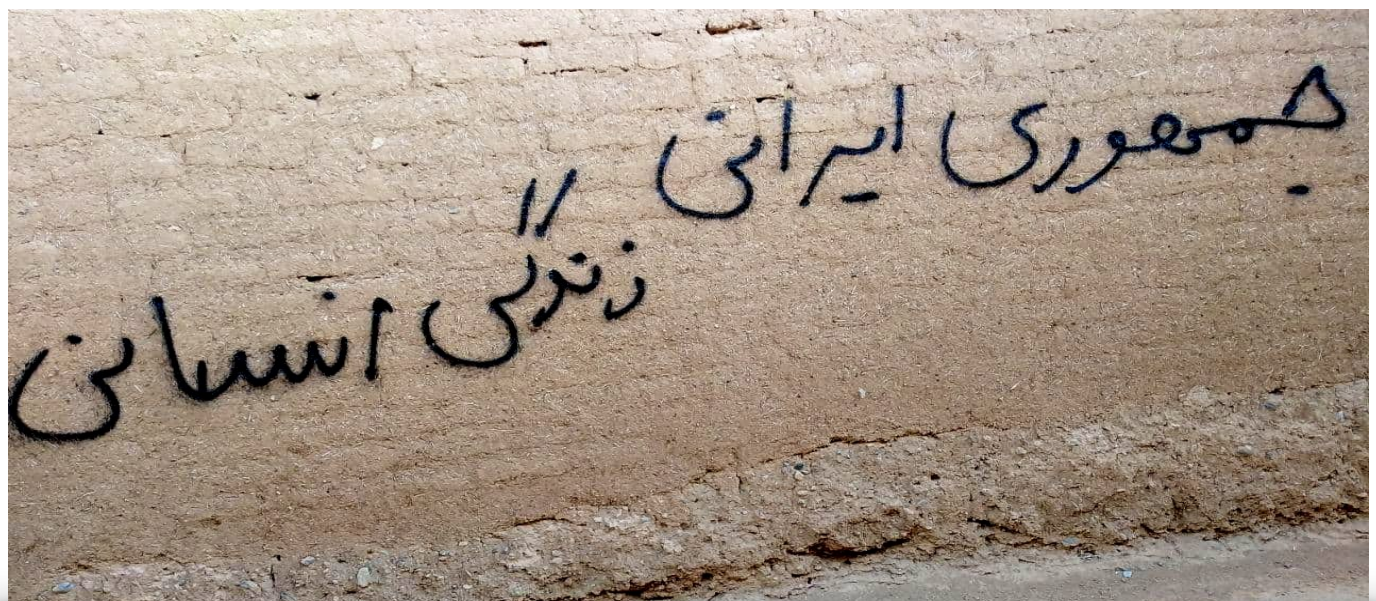 جمهوری ایرانی
زندگی انسانی